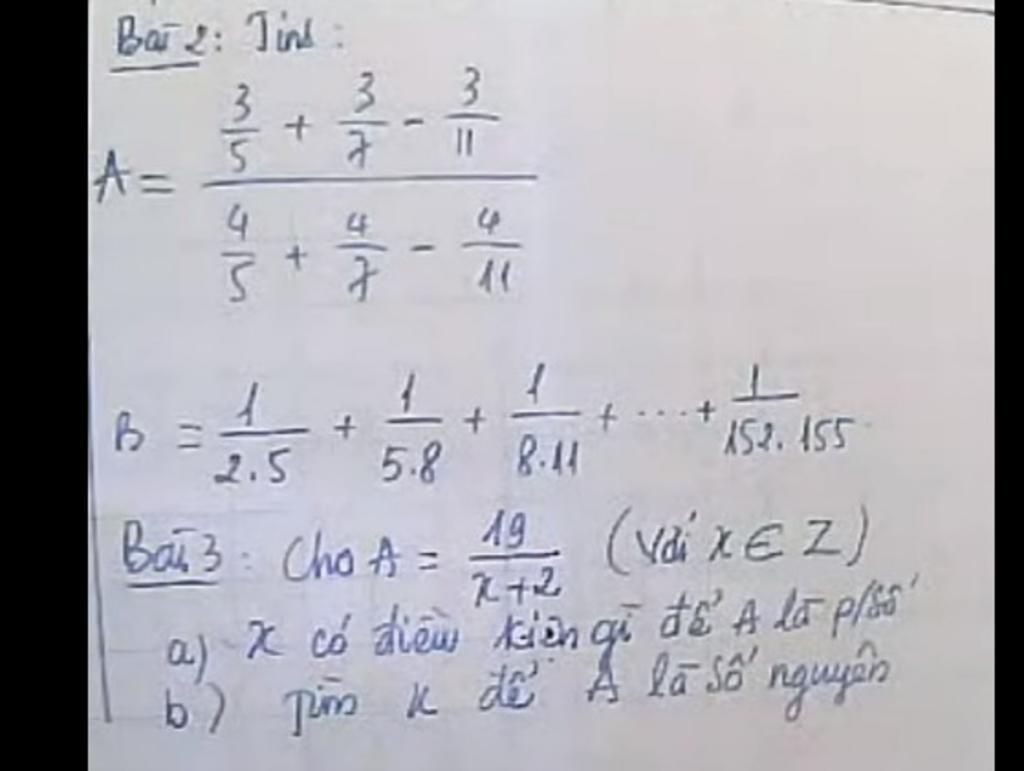 Bài 2: Tính:
A = (3/5 + 3/7 - 3/11) / (4/5 + 4/7 - 4/11)
B = 1/2.5 + 1/5.8 + 1/8.11 + ... + 1/152.155
Bài 3: Cho A = 19/x+2 (với x ∈ Z)
a) x có điều kiện gì để A là p/số
b) Tìm x để A là số nguyên